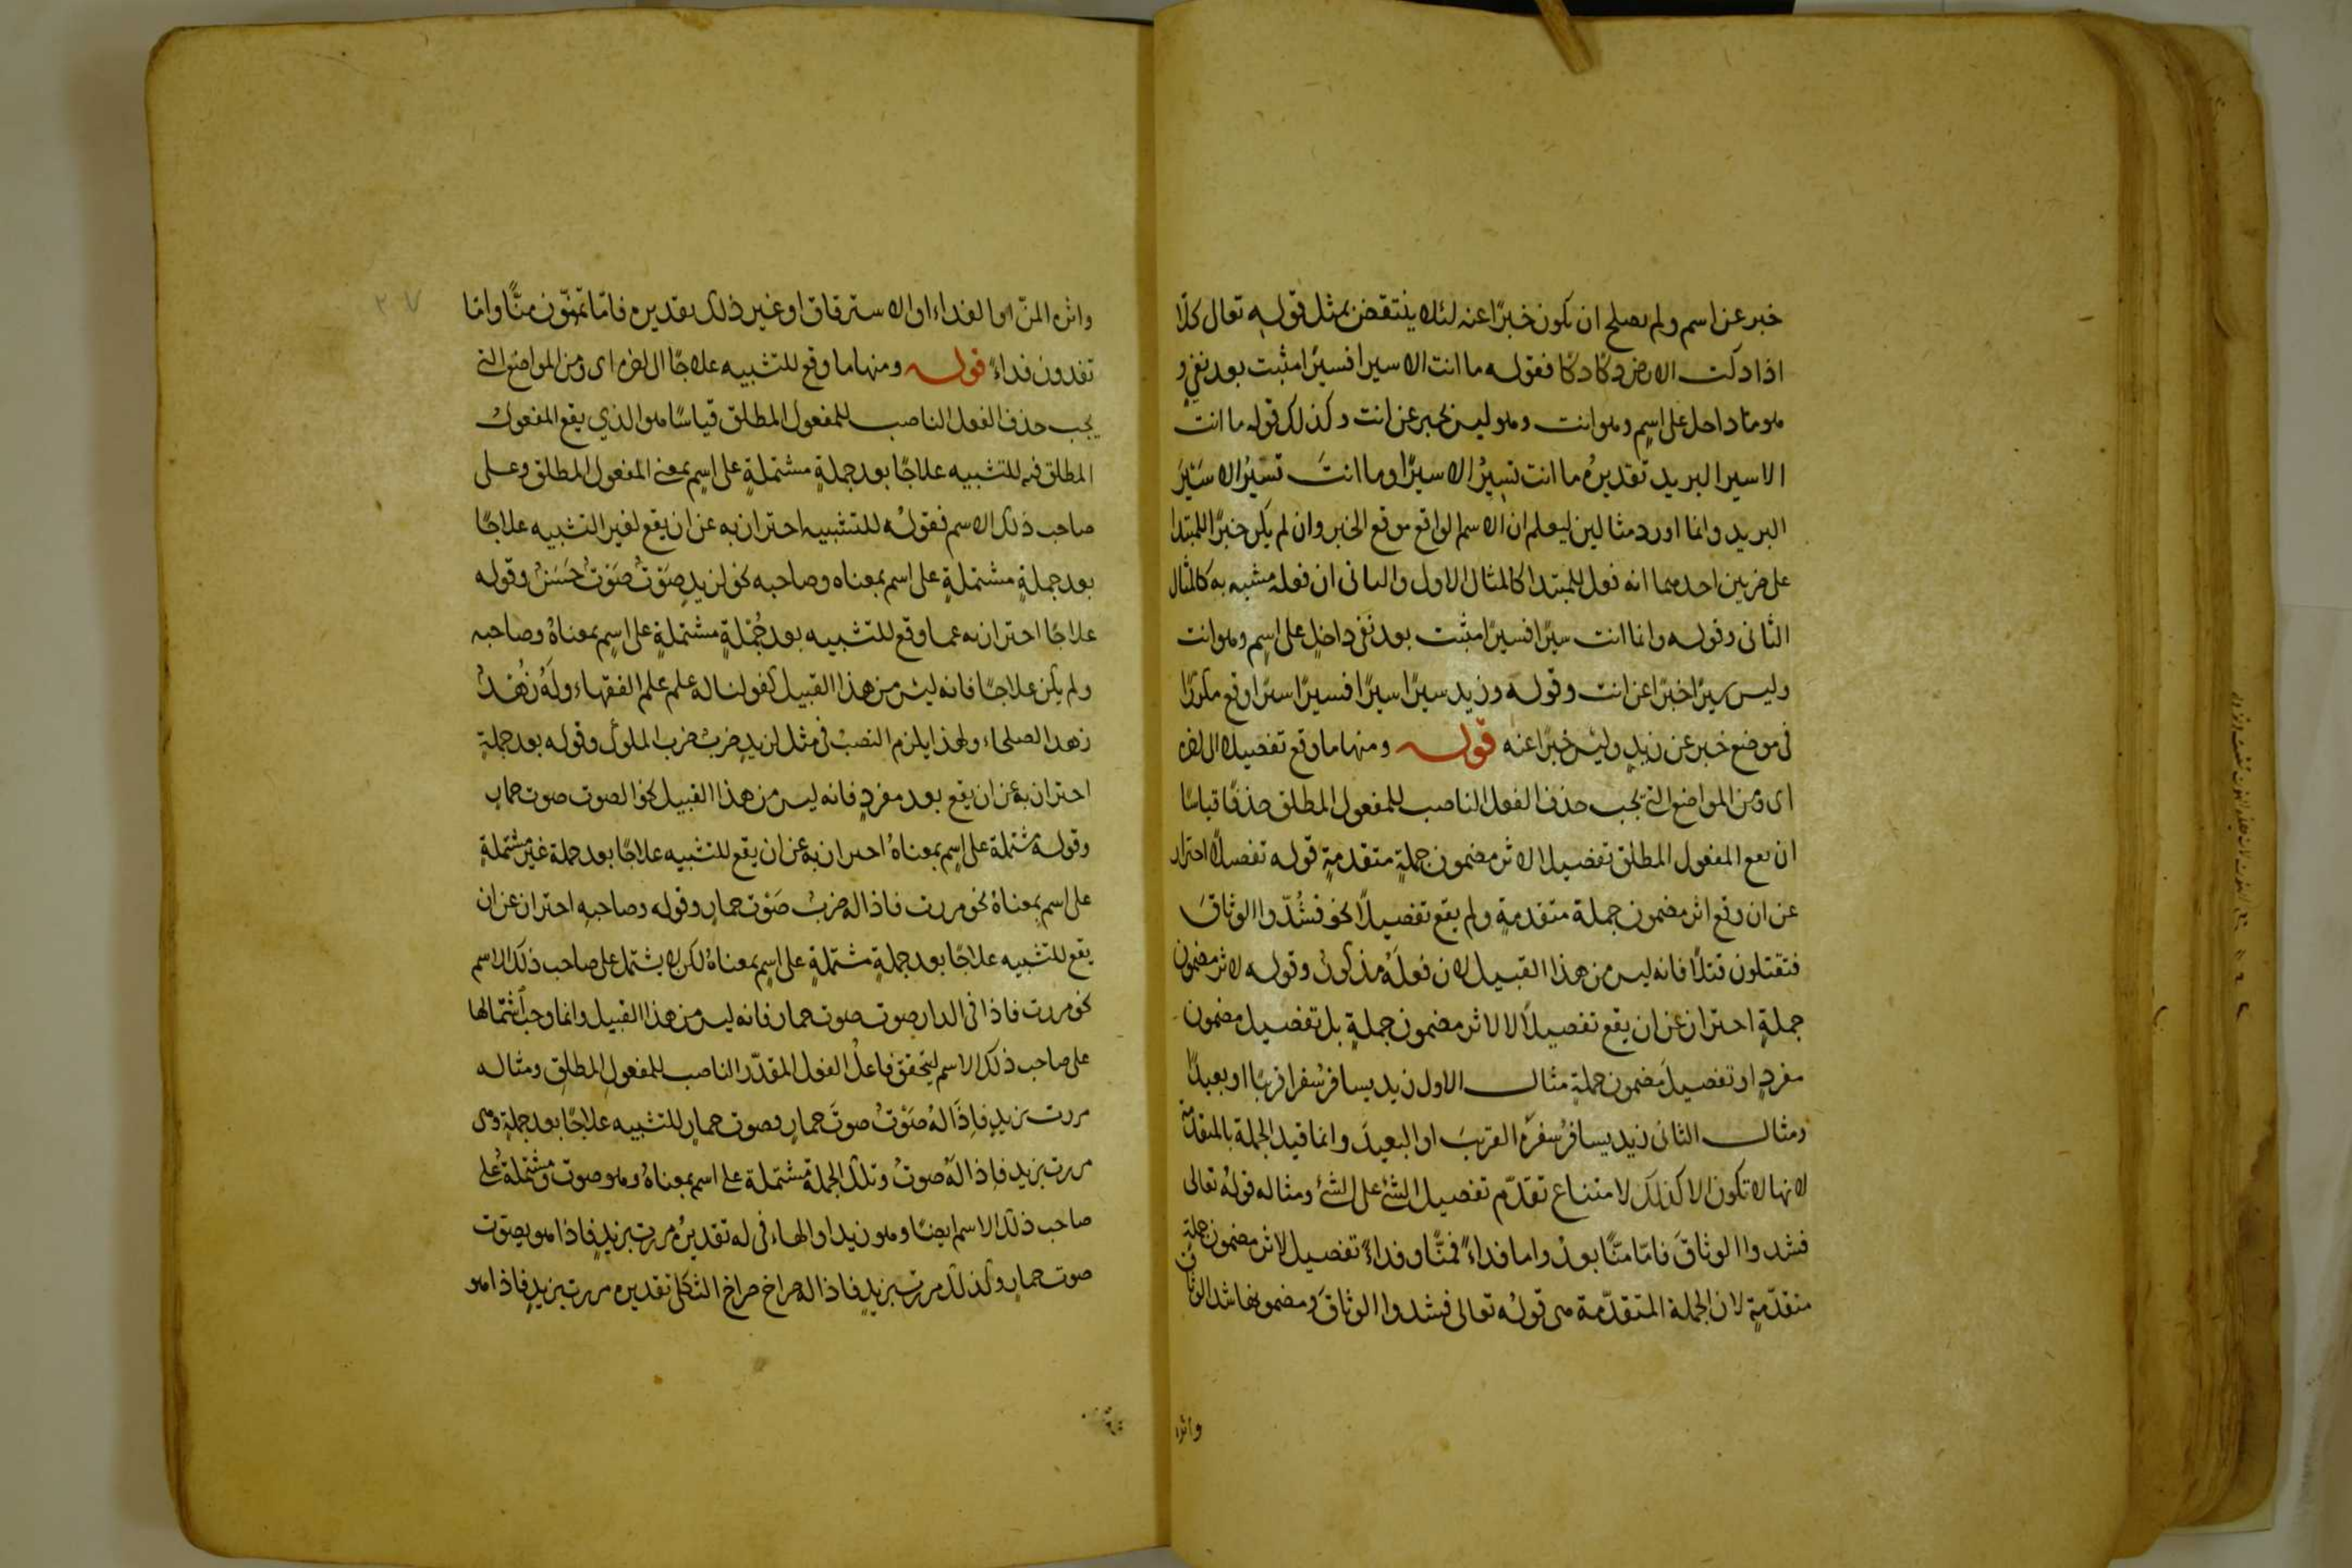 خبر عن اسم ولم يصلح ان يكون خبرًا عنه لئلا ينتقض بمثل قوله تعالى كلّا
اذا دكت الارض دكًا دكًا فقوله ما انت الا سيرا فسيرًا مثبت بعد نفي و
هو ما داخل على اسمٍ وهو انت وهو ليس بخبر عن انت وكذلك قوله ما انت
الا سير البريد تقديرهُ ما انت تسيرُ الا سيرًا وما انتَ تسيرُ الا سَيْرَ
البريد وانما اورد مثالين ليعلم ان الاسم الواقع موقع الخبر وان لم يكن خبرًا للمبتدا
على ضربين احدهما انه فعل للمبتدا كالمثال الاول والثانى ان فعله مشبه به كالمثال
الثانى وقوله وانما انت سيرًا فسيرًا مثبت بعد نفى داخلٍ على اسمٍ وهو انت
وليس سيرًا خبرًا عن انت وقوله وزيد سيرًا سيرًا فسيرًا سيرًا وقع مكررًا
فى موضع خبر عن زيدٍ وليس خبرًا عنه قوله ومنها ما وقع تفصيلا الى اخره
اى ومن المواضع التى يجب حذف الفعل الناصب للمفعول المطلق حذفًا قياسًا
ان يقع المفعول المطلق تفصيلا لاثر مضمون جملةٍ متقدمةٍ قوله تفصيلًا احتراز
عن ان وقع اثر مضمون جملة متقدمةٍ ولم يقع تفصيلًا نحو فشُدّوا الوثاقَ
فتقتلون قتلًا فانه ليس من هذا القبيل لان فعلَهُ مذكورٌ وقوله لاثر مضمون
جملةٍ احتراز عن ان يقع تفصيلًا لا لاثر مضمون جملةٍ بل تفصيل مضمون
مفردٍ او تفصيلَ مضمون جملةٍ مثال الاول زيد يسافر سفرا قريبًا او بعيدًا
ومثال الثانى زيد يسافرُ سفرَهُ القريبَ او البعيدَ وانما قيد الجملة بالمتقدمة
لانها لا تكون الا كذلك لامتناع تقدّم تفصيل الشئ على الشئ ومثاله قولهُ تعالى
فشدوا الوثاقَ فامّا منًّا بعدُ واما فداءً فمنًّا وفداءً تفصيل لاثر مضمون جملةٍ
متقدّمةٍ لان الجملة المتقدّمة هى قولهُ تعالى فشدوا الوثاقَ ومضمونها شد الوثاق
واثره
واثره المنّ او الفداء او الاسترقاق او غير ذلك تقديره فامّا تمنّون منًّا واما
تفدون فداءً قوله ومنها ما وقع للتشبيه علاجًا الى اخره اى ومن المواضع التى
يجب حذف الفعل الناصب للمفعول المطلق قياسًا هو الذي يقع المفعول
المطلق فيه للتشبيه علاجًا بعد جملةٍ مشتملةٍ على اسمٍ بمعنى المفعول المطلق وعلى
صاحب ذلك الاسم فقولُه للتشبيه احتراز به عن ان يقع لغير التشبيه علاجًا
بعد جملةٍ مشتملةٍ على اسم بمعناه وصاحبه نحو لزيدٍ صَوْتٌ صَوْتٌ حَسَنٌ وقوله
علاجًا احتراز به عما وقع للتشبيه بعد جُمْلةٍ مشتملةٍ على اسمٍ بمعناهُ وصاحبه
ولم يكن علاجًا فانه ليس من هذا القبيل كقولنا له علم علم الفقهاء ولَهُ زُهْدٌ
زهد الصلحاء ولهذا يلزم النصبُ فى مثل لزيدٍ ضربٌ ضرب الملوك وقوله بعد جملةٍ
احتراز به عن ان يقع بعد مفردٍ فانه ليس من هذا القبيل نحو الصوت صوت حمارٍ
وقوله مشتملة على اسمٍ بمعناهُ احتراز به عن ان يقع للتشبيه علاجًا بعد جملة غير مشتملةٍ
على اسم بمعناهُ نحو مررت فاذا له ضربٌ صَوْت حمارٍ وقوله وصاحبهِ احتراز عن ان
يقع للتشبيه علاجًا بعد جملةٍ مشتملةٍ على اسمٍ بمعناهُ لكن لا يشتمل على صاحب ذلك الاسم
نحو مررت فاذا فى الدار صوت صوت حمار فانه ليس من هذا القبيل وانما وجب اشتمالها
على صاحب ذلك الاسم ليتحقق فاعلُ الفعل المقدّر الناصب للمفعولِ المطلقِ ومثاله
مررت بزيدٍ فاِذَا لهُ صَوْتٌ صوتَ حمارٍ فصوت حمارٍ للتشبيه علاجًا بعد جملةٍ وهى
مررت بزيد فاِذا لَهُ صوتٌ وتلك الجملة مشتملة على اسم بمعناهُ وهو صوت ومشتملةٌ على
صاحب ذلك الاسم ايضًا وهو زيد او الهاء فى له تقديرُه مررت بزيدٍ فاذا هو يصوّت
صوت حمارٍ وكذلك مررت بزيدٍ فاذا له صراخ صراخ الثكلى تقديره مررت بزيدٍ فاذا هو
٢٠٧